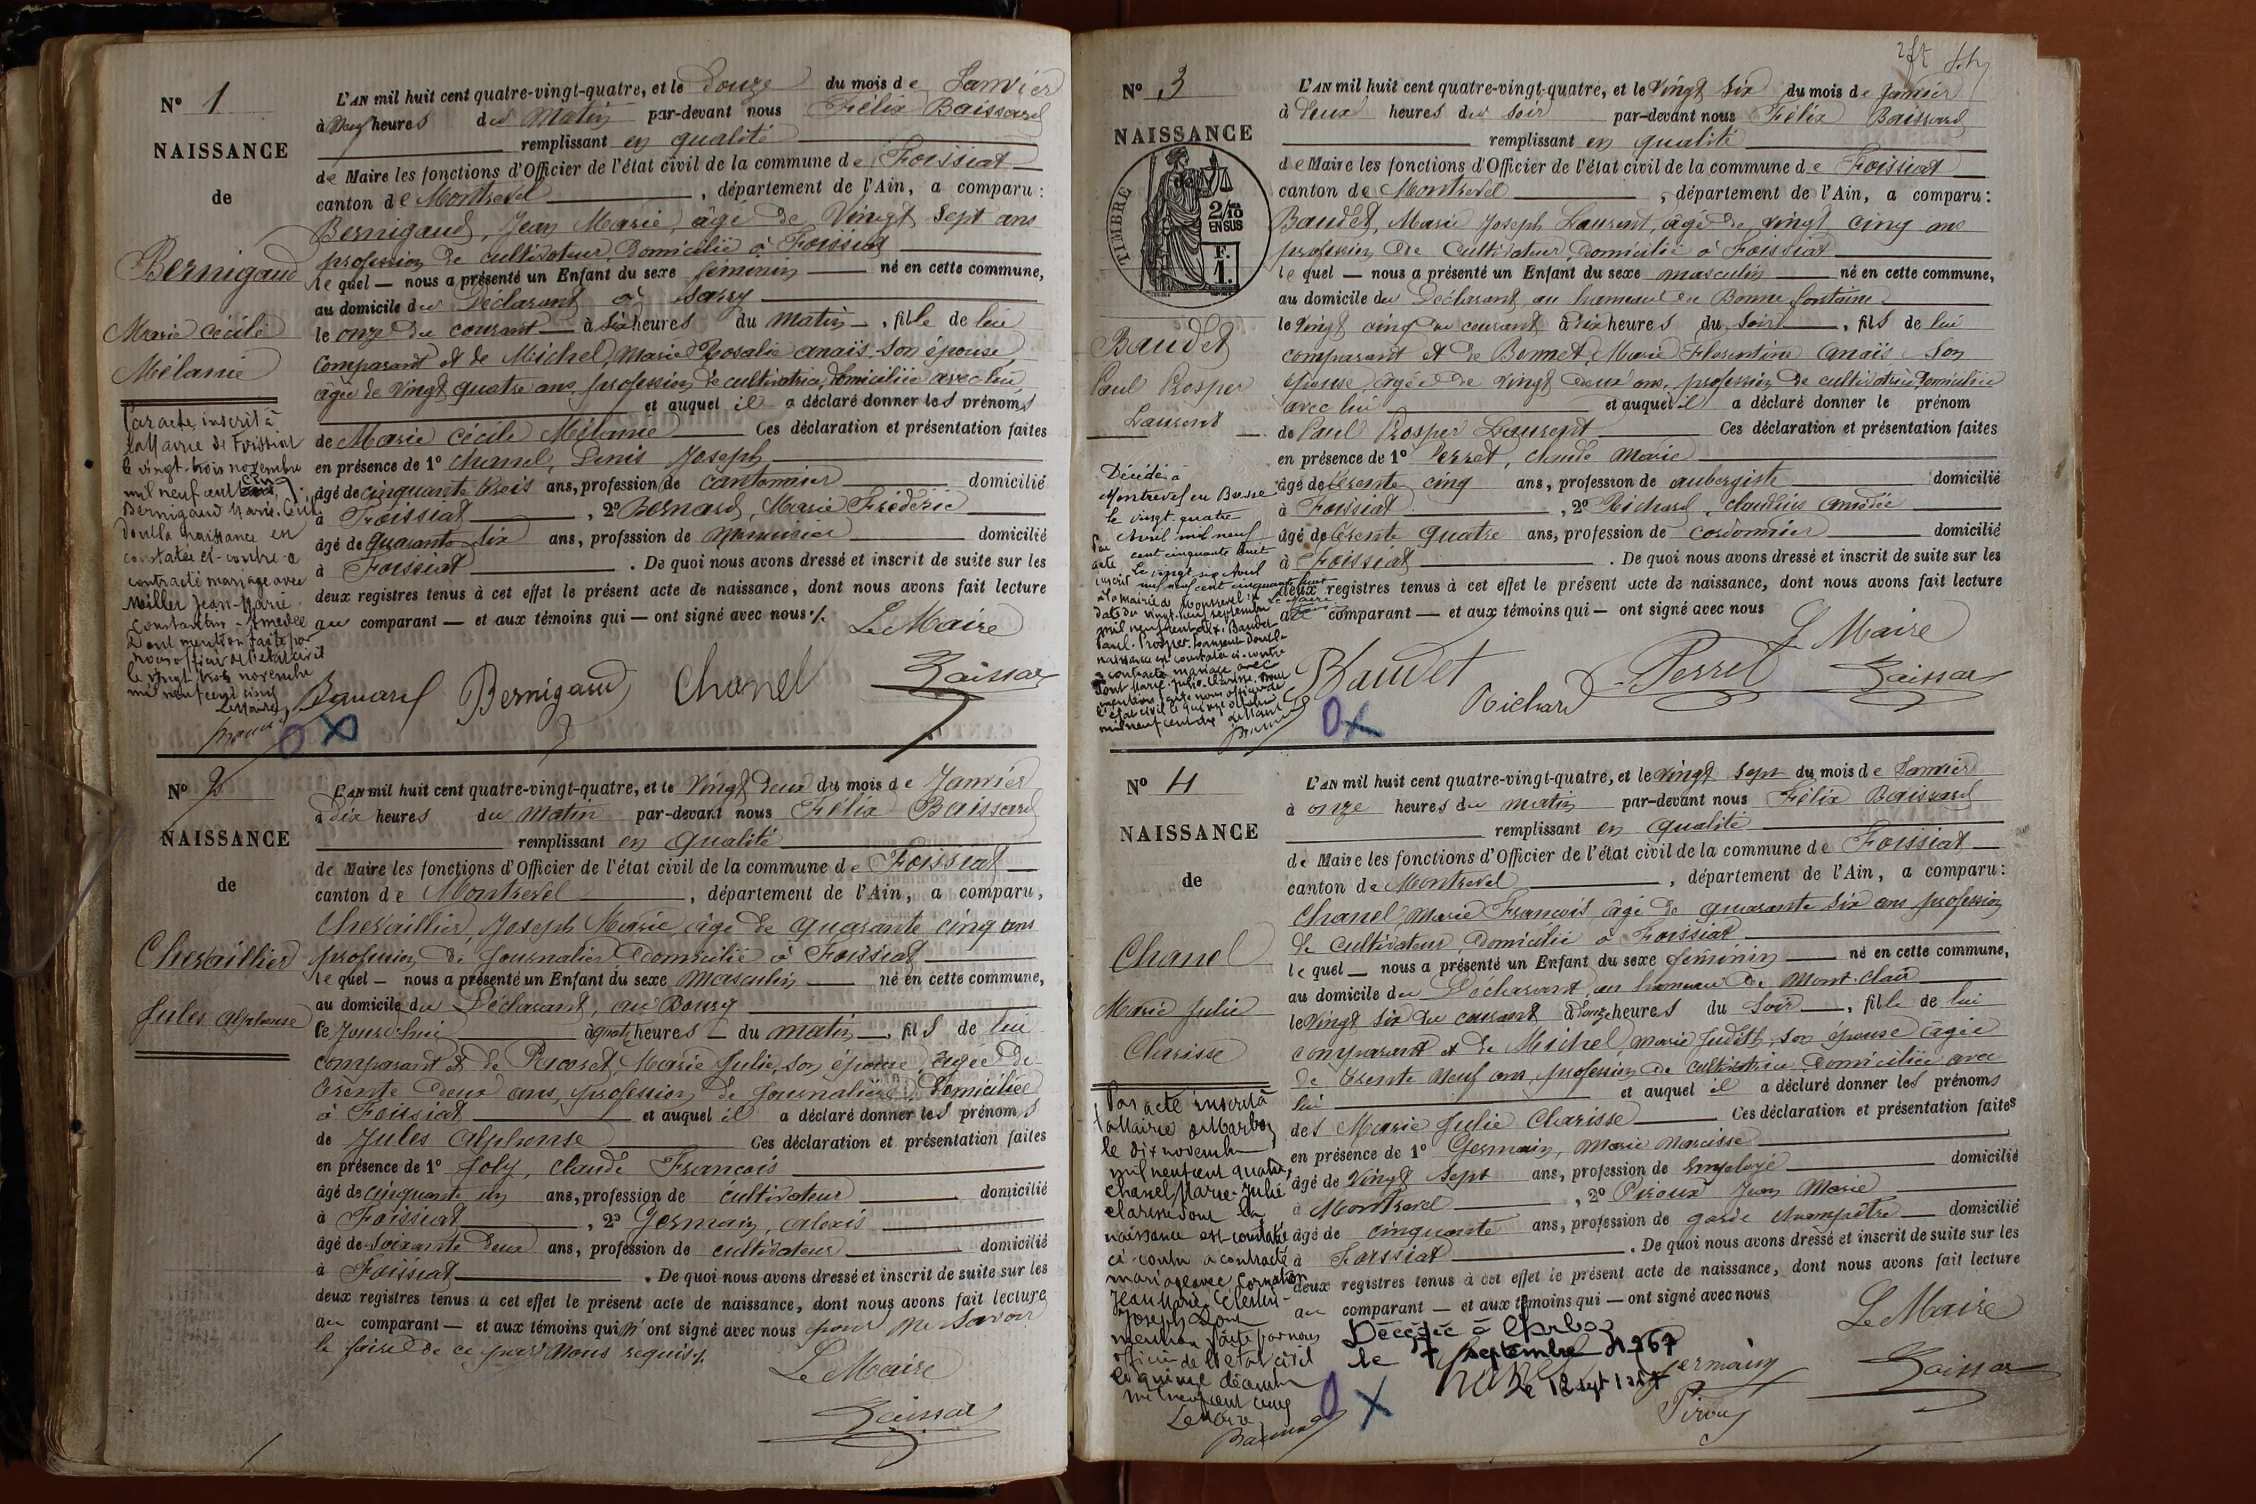 N° 1
NAISSANCE
de
Bernigaud
Marie Cécile
Mélanie
Par acte inscrit à
la Mairie de Foissiat
le vingt-trois novembre
mil neuf cent cinq
Bernigaud Marie-Cécile
dont la naissance est
constatée ci-contre a
contracté mariage avec
Millet Jean-Marie
Constantin-Amédée
Dont mention faite par
nous officier de l'état civil
le vingt trois novembre
mil neuf cent cinq
Le Maire
L'AN mil huit cent quatre-vingt-quatre, et le Douze du mois de Janvier
à neuf heures du Matin par-devant nous Félix Baissard
remplissant en qualité
de Maire les fonctions d'Officier de l'état civil de la commune de Foissiat
canton de Montrevel, département de l'Ain, a comparu:
Bernigaud, Jean Marie, âgé de Vingt Sept ans
profession de cultivateur, Domicilié à Foissiat
lequel — nous a présenté un Enfant du sexe féminin né en cette commune,
au domicile du Déclarant à
le onze du courant à six heures du matin, fille de lui
Comparant et de Michel, Marie Rosalie anaïs son épouse
âgée de vingt quatre ans, profession de cultivatrice, domiciliée avec lui
et auquel il a déclaré donner les prénoms
de Marie Cécile Mélanie Ces déclaration et présentation faites
en présence de 1° Chanel, Denis Joseph
âgé de cinquante trois ans, profession de cantonnier domicilié
à Foissiat, 2° Bernard, Marie Frédéric
âgé de quarante six ans, profession de Menuisier domicilié
à Foissiat. De quoi nous avons dressé et inscrit de suite sur les
deux registres tenus à cet effet le présent acte de naissance, dont nous avons fait lecture
au comparant — et aux témoins qui — ont signé avec nous ./.
Le Maire
Bernigaud Chanel Baissard
N° 2
NAISSANCE
de
Chevaillier
Jules alphonse
L'AN mil huit cent quatre-vingt-quatre, et le Vingt Deux du mois de Janvier
à dix heures du Matin par-devant nous Félix Baissard
remplissant en qualité
de Maire les fonctions d'Officier de l'état civil de la commune de Foissiat
canton de Montrevel, département de l'Ain, a comparu,
Chevaillier, Joseph Marie, âgé de quarante cinq ans
profession de Journalier Domicilié à Foissiat
lequel — nous a présenté un Enfant du sexe Masculin né en cette commune,
au domicile du Déclarant, au Bourg
le Jourd'hui à quatre heures — du matin, fils de lui
comparant et de Marie Julie, son épouse, âgée de
trente deux ans, profession de Journalière, Domiciliée
à Foissiat et auquel il a déclaré donner les prénoms
de Jules alphonse Ces déclaration et présentation faites
en présence de 1° Joly, Claude François
âgé de cinquante un ans, profession de cultivateur domicilié
à Foissiat, 2° Germain, alexis
âgé de Soixante Deux ans, profession de cultivateur domicilié
à Foissiat. De quoi nous avons dressé et inscrit de suite sur les
deux registres tenus à cet effet le présent acte de naissance, dont nous avons fait lecture
au comparant — et aux témoins qui n'ont signé avec nous pour ne savoir
le faire de ce par nous requis ./.
Le Maire
Baissard
N° 3
NAISSANCE
de
TIMBRE
2/10 EN SUS
F. 1.
Baudet
Paul Prosper
Laurent
Décédé à
Montrevel en Bresse
le vingt-quatre
Avril mil neuf
cent cinquante huit
Le vingt six Avril
mil neuf cent cinquante huit
Le Maire
Par acte inscrit
à la Mairie de Montrevel en
date du vingt-neuf septembre
mil neuf cent dix, Baudet
Paul-Prosper-Laurent dont la
naissance est constatée ci-contre
a contracté mariage avec
L'AN mil huit cent quatre-vingt-quatre, et le Vingt Six du mois de Janvier
à Deux heures du Soir par-devant nous Félix Baissard
remplissant en qualité
de Maire les fonctions d'Officier de l'état civil de la commune de Foissiat
canton de Montrevel, département de l'Ain, a comparu:
Baudet, Marie Joseph Laurent, âgé de vingt cinq ans
profession de Cultivateur, Domicilié à Foissiat
lequel — nous a présenté un Enfant du sexe masculin né en cette commune,
au domicile du Déclarant, au hameau de Bonne fontaine
le Vingt cinq du courant à dix heures du Soir, fils de lui
comparant et de Bonnet, Marie Florentine anaïs Son
épouse âgée de vingt deux ans, profession de cultivatrice, Domiciliée
avec lui et auquel il a déclaré donner le prénom
de Paul Prosper Laurent Ces déclaration et présentation faites
en présence de 1° Perret, Claude Marie
âgé de trente cinq ans, profession de aubergiste domicilié
à Foissiat, 2° Richard, Claudius amédée
âgé de trente quatre ans, profession de cordonnier domicilié
à Foissiat. De quoi nous avons dressé et inscrit de suite sur les
deux registres tenus à cet effet le présent acte de naissance, dont nous avons fait lecture
au comparant — et aux témoins qui — ont signé avec nous
Le Maire
Baudet Perret
Richard Baissard
N° 4
NAISSANCE
de
Chanel
Marie Julie
Clarisse
Par acte inscrit à
la Mairie de Marboz
le dix novembre
mil neuf cent quatre,
Chanel Marie-Julie
Clarisse dont la
naissance est constatée
ci-contre a contracté
mariage avec
Jean Marie
Joseph Dont
mention faite par nous
officier de l'état civil
le quinze décembre
mil neuf cent cinq
Le Maire
L'AN mil huit cent quatre-vingt-quatre, et le Vingt Sept du mois de Janvier
à onze heures du matin par-devant nous Félix Baissard
remplissant en qualité
de Maire les fonctions d'Officier de l'état civil de la commune de Foissiat
canton de Montrevel, département de l'Ain, a comparu:
Chanel, Marie François âgé de quarante six ans profession
de cultivateur, Domicilié à Foissiat
lequel — nous a présenté un Enfant du sexe féminin né en cette commune,
au domicile du Déclarant, au hameau de Mont-Clair
le Vingt six du courant à onze heures du Soir, fille de lui
comparant et de Michel, Marie Judith, son épouse âgée
de trente neuf ans, profession de cultivatrice, Domiciliée avec
lui et auquel il a déclaré donner les prénoms
des Marie Julie Clarisse Ces déclaration et présentation faites
en présence de 1° Germain, Marie Narcisse
âgé de Vingt Sept ans, profession de Employé domicilié
à Montrevel, 2° Piroux Jean Marie
âgé de cinquante ans, profession de garde champêtre domicilié
à Foissiat. De quoi nous avons dressé et inscrit de suite sur les
deux registres tenus à cet effet le présent acte de naissance, dont nous avons fait lecture
au comparant — et aux témoins qui — ont signé avec nous
Le Maire
Décédée à Marboz
le 7 septembre 1967
Chanel Germain
Piroux Baissard